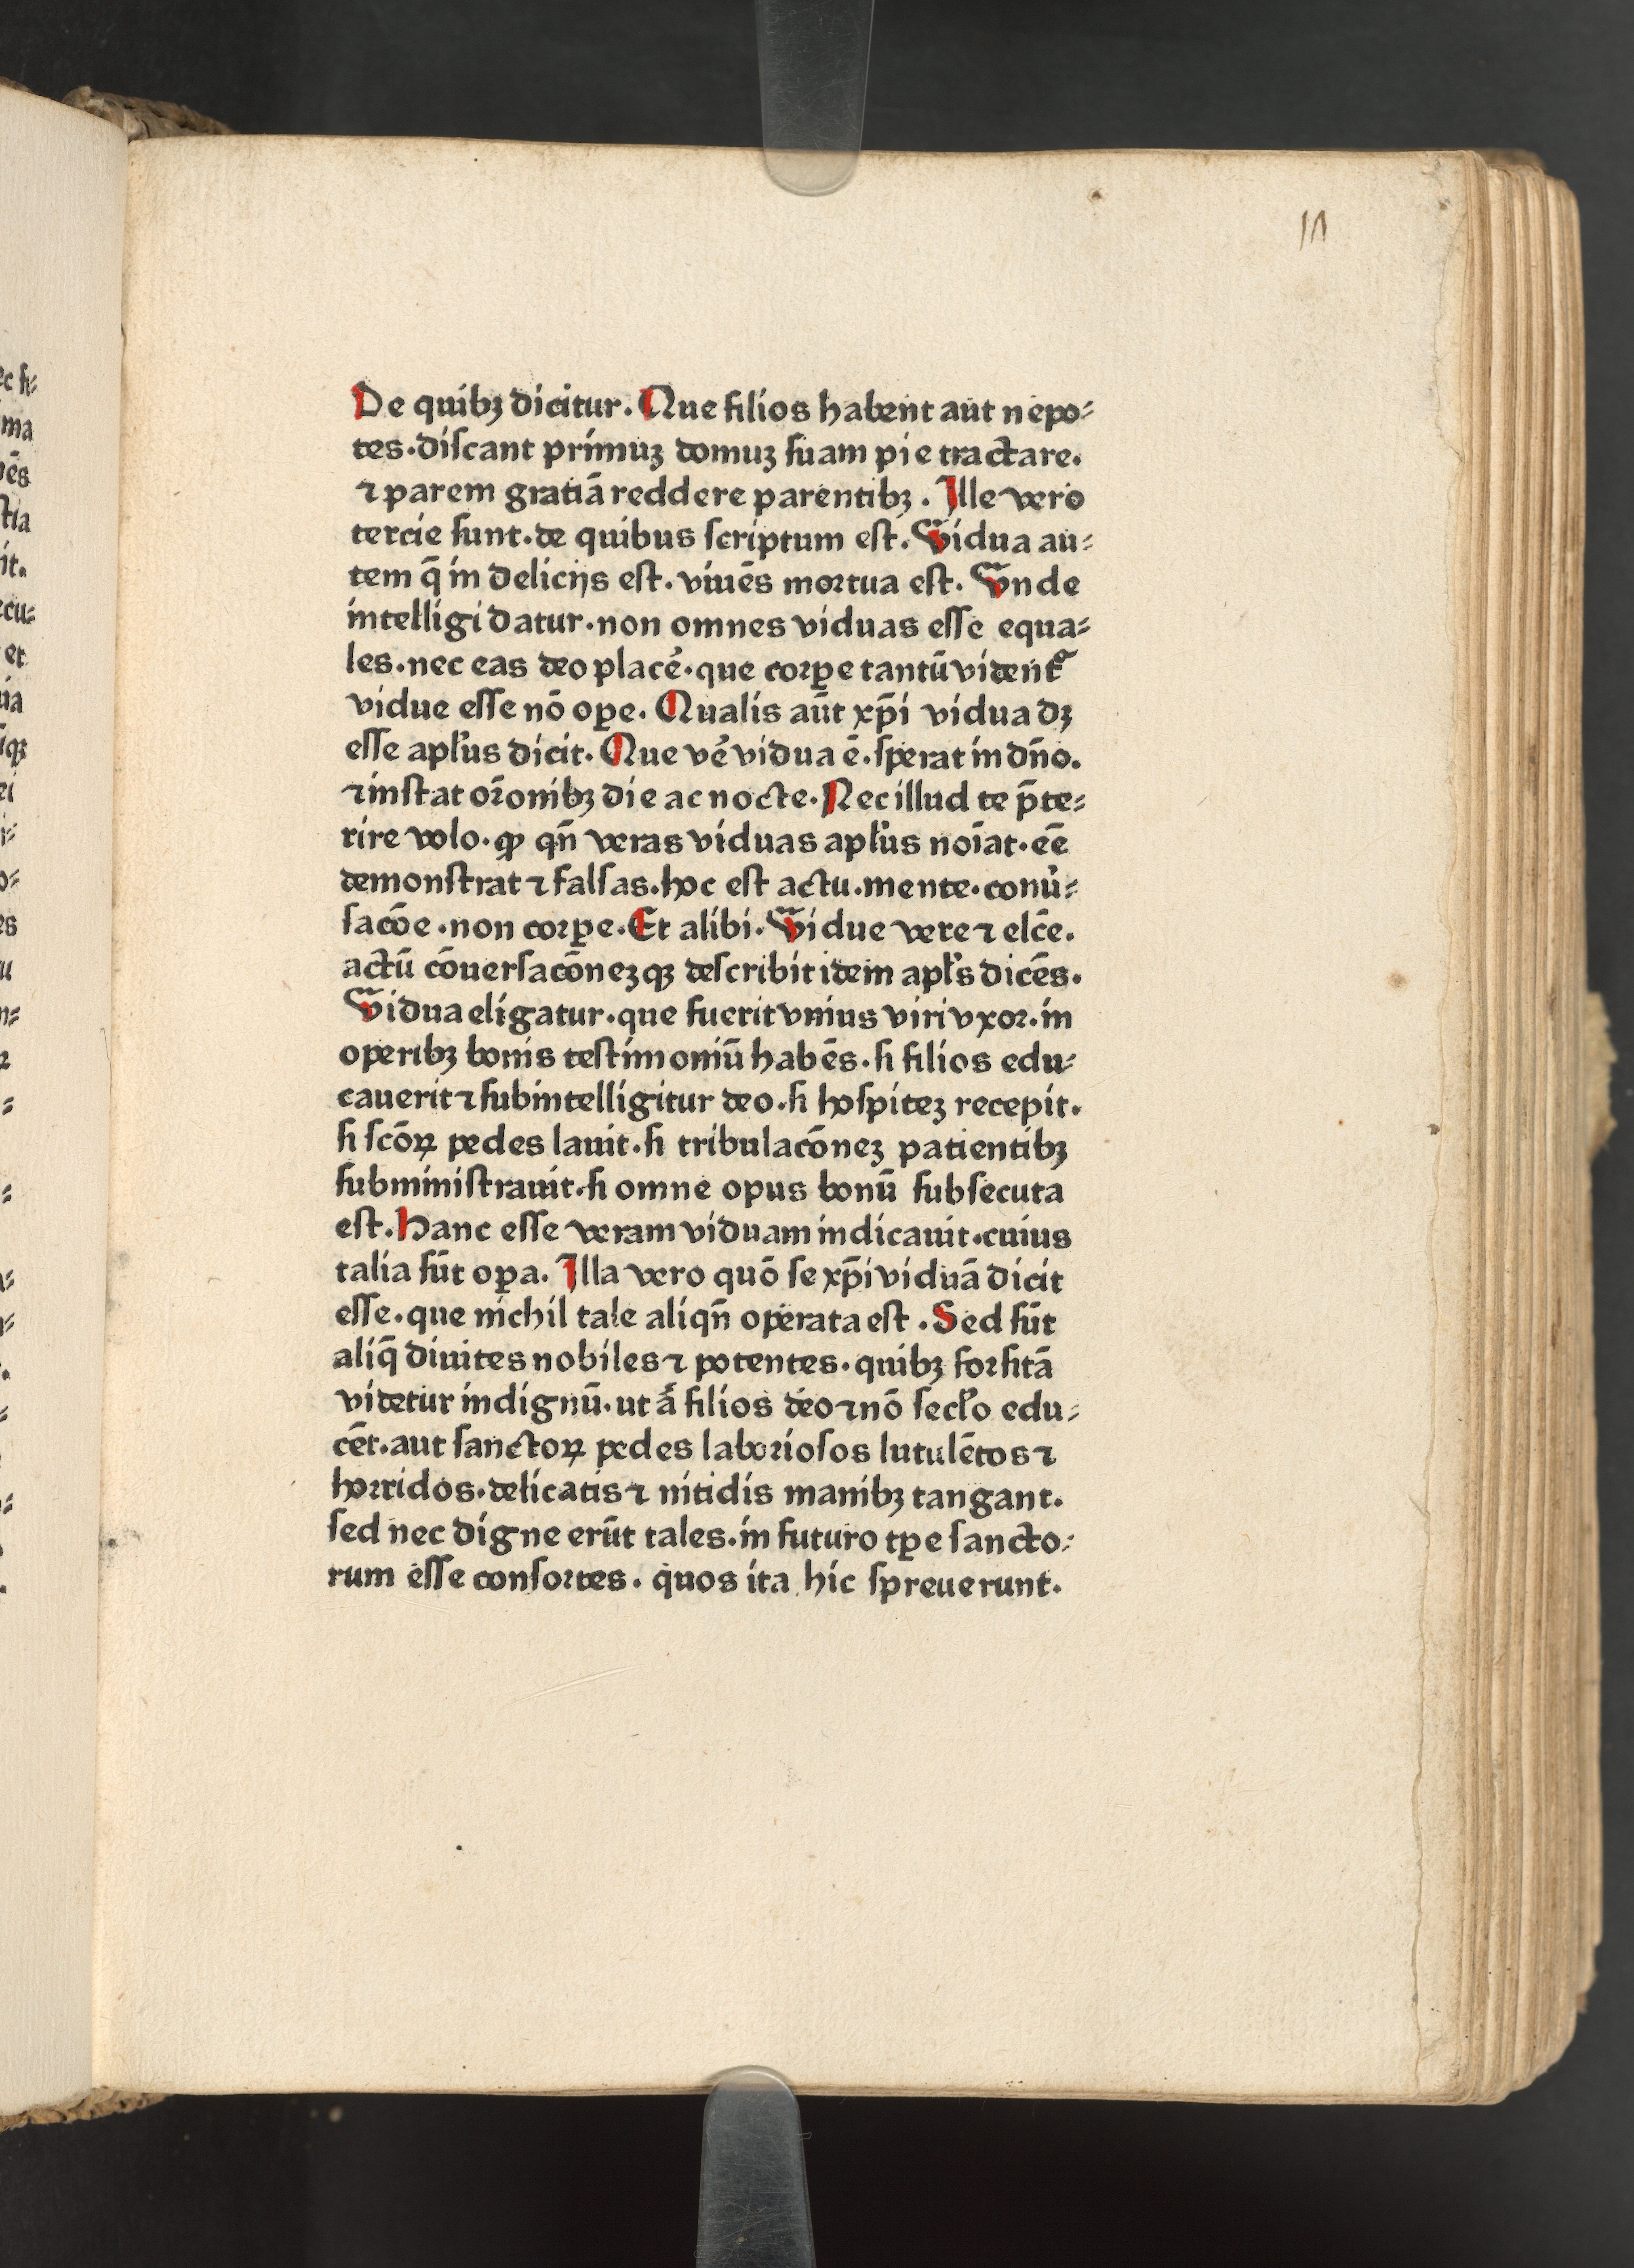 De quibꝫ dicitur. Que filios habent aut nepo⸗
tes. discant primuꝫ domuꝫ suam pie tractare.
⁊ parem gratiā reddere parentibꝫ. Ille vero
tercie sunt. de quibus scriptum est. Vidua au⸗
tem q̄ in delicijs est. viuēs mortua est. Vnde
intelligi datur. non omnes viduas esse equa⸗
les. nec eas deo placē. que corꝑe tantū vident᷑
vidue esse nō oꝑe. Qualis aūt xp̄i vidua dꝫ
esse apl̄us dicit. Que vē vidua ē. sperat in dn̄o.
⁊ instat or̄onibꝫ die ac nocte. Nec illud te p̄te⸗
rire volo. ꝙ qn̄ veras viduas apl̄us noīat. eē
demonstrat ⁊ falsas. hoc est actu. mente. conu̓⸗
sacōe. non corꝑe. Et alibi. Vidue vere ⁊ elc̄e.
actū cōuersacōneꝫqꝫ describit idem apl̄s dicēs.
Vidua eligatur. que fuerit vnius viri vxor. in
operibꝫ bonis testimoniū habēs. si filios edu⸗
cauerit ⁊ subintelligitur deo. si hospiteꝫ recepit.
si scōꝝ pedes lauit. si tribulacōneꝫ patientibꝫ
subministrauit. si omne opus bonū subsecuta
est. Hanc esse veram viduam indicauit. cuius
talia sūt oꝑa. Illa vero quō se xp̄i viduā dicit
esse. que nichil tale aliqn̄ operata est. Sed sūt
aliq̄ diuites nobiles ⁊ potentes. quibꝫ forsitā
videtur indignū. ut ā filios deo ⁊ nō secl̄o edu⸗
cēt. aut sanctoꝝ pedes laboriosos lutulētos ⁊
horridos. delicatis ⁊ nitidis manibꝫ tangant.
sed nec digne erūt tales. in futuro tꝑe sancto⸗
rum esse consortes. quos ita hic spreuerunt.